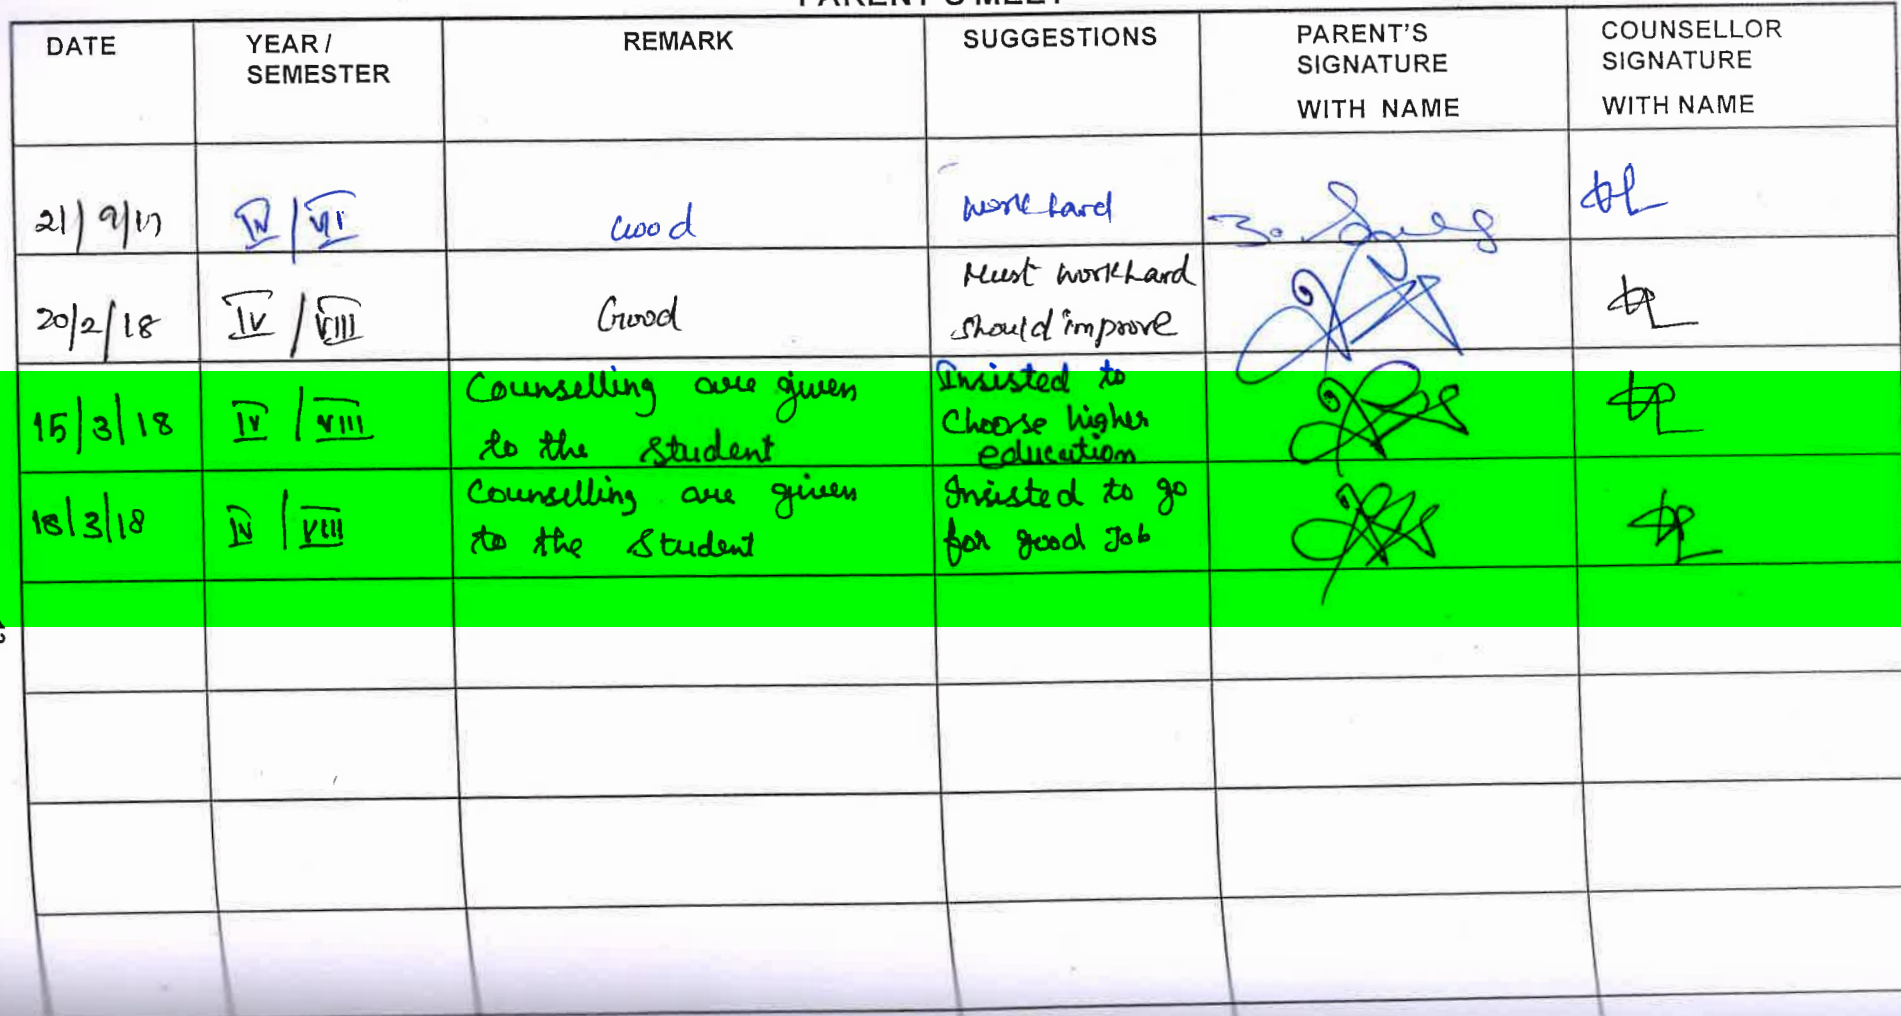 PARENT'S MEET
DATE YEAR / SEMESTER REMARK SUGGESTIONS PARENT'S SIGNATURE WITH NAME COUNSELLOR SIGNATURE WITH NAME
21/9/17 IV / VII Good work hard
20/2/18 IV / VIII Good Must work hard
should improve
15/3/18 IV / VIII Counselling are given Insisted to
to the student choose higher
education
18/3/18 IV / VIII Counselling are given Insisted to go
to the student for good Job